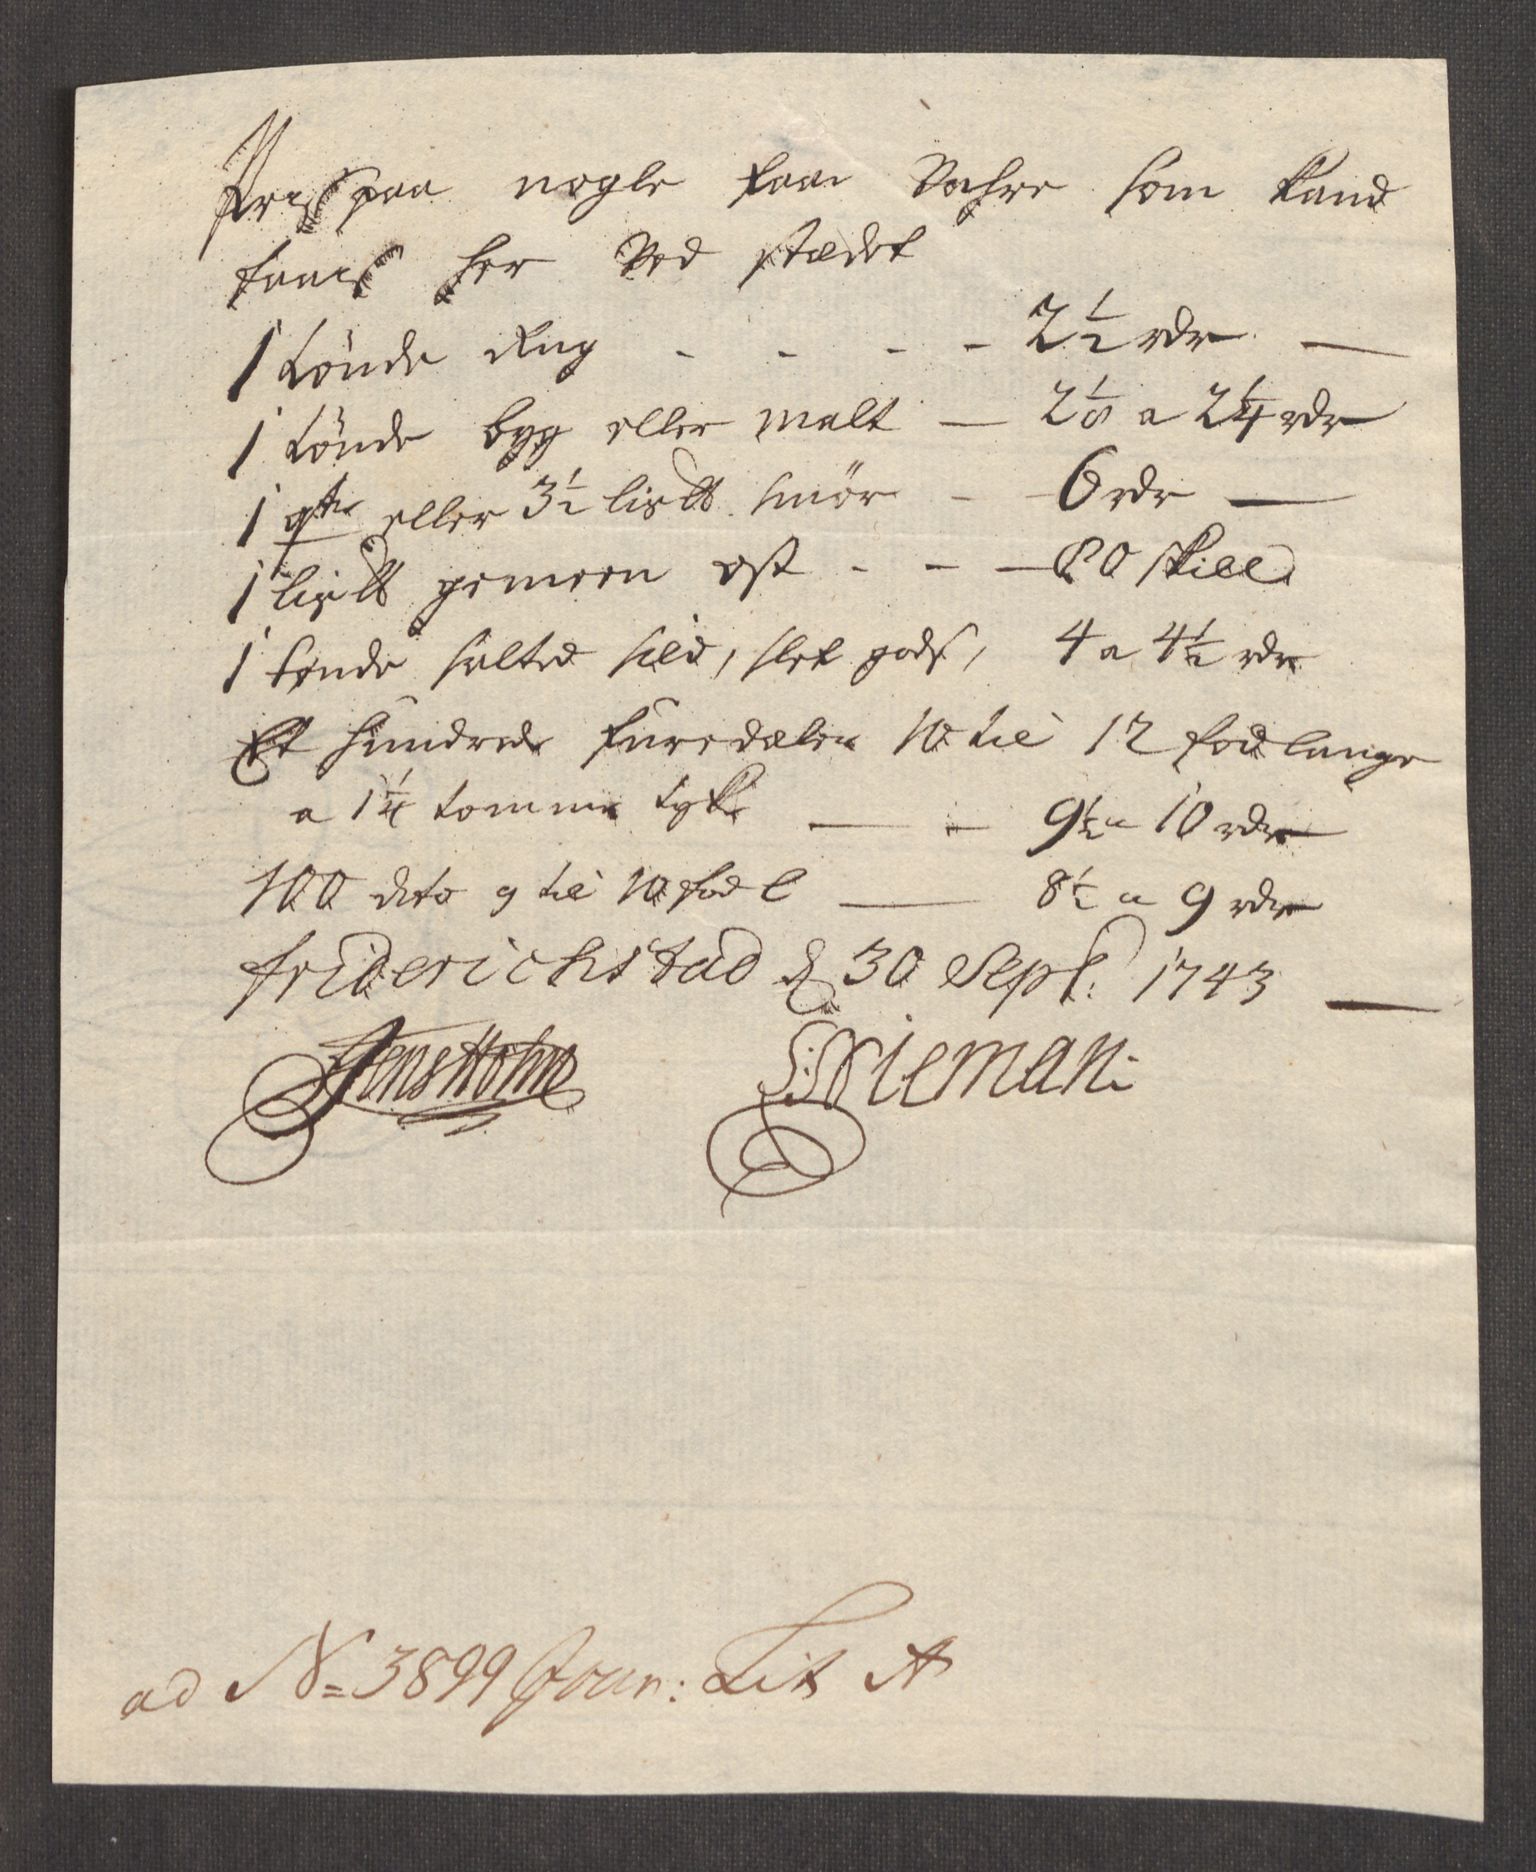 Priis paa nogle faae Vahre som kand
faaes her Ved stædet
1 tönde Rug - - - - 2 1/2 rdr —
1 tönde byg eller malt — 2 1/8 a 2 1/4 rdr
1 qtr eller 3 1/2 lis℔ smör - - 6 rdr —
1 lis℔ gemeen ost - - — 80 skill
1 tønde salted sild, slet gods, 4 a 4 1/2 rdr
Et hundrede furedæler 10 til 12 fod lange
a 1 1/4 tomme tyke — — 9 1/2 a 10 rdr
100 dito 9 til 10 fod l — 8 1/2 a 9 rdr
friderichstad d 30 Sept: 1743 —
Jens Holm S: Wieman:
ad No= 3899 Jour: Lit A